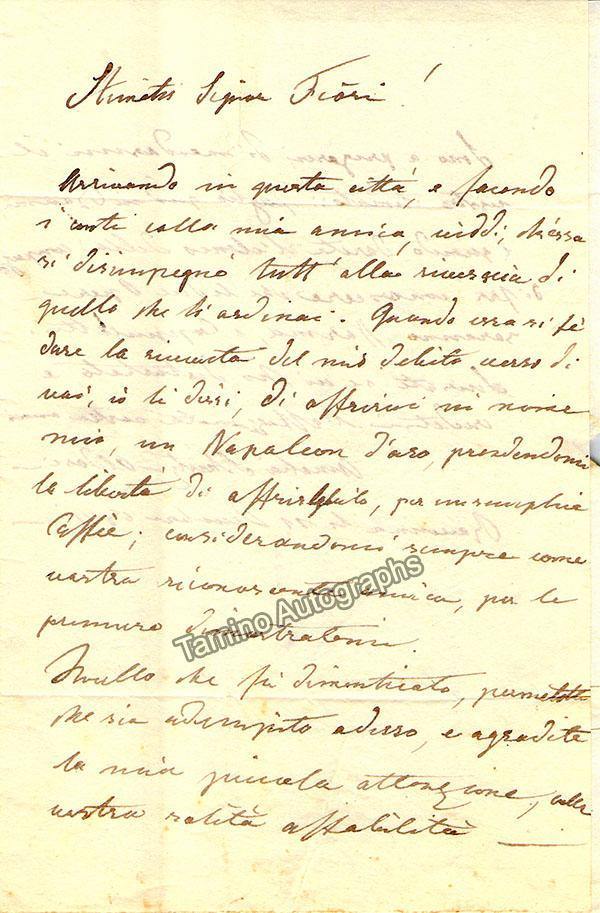 Stimato Signor Fiori!
Arrivando in questa città, e facendo
i conti colla mia amica, viddi, ch'essa
si disimpegnò tutt' alla rovescià di
quello che li ordinai. Quando essa si fè
dare la ricevuta del mio debito verso di
voi, io li dissi, di offrirvi in nome
mio, un Napoleon d'oro, prendendomi
la libertà di offrirlo, per un semplice
Caffè; considerandomi sempre come
vostra riconoscente amica, per le
premure dimostratemi.
Quello che fù dimenticato, permettete
che sia adempito adesso, e agradite
la mia piccola attenzione, colla
vostra solità affabilità
Tamino Autographs